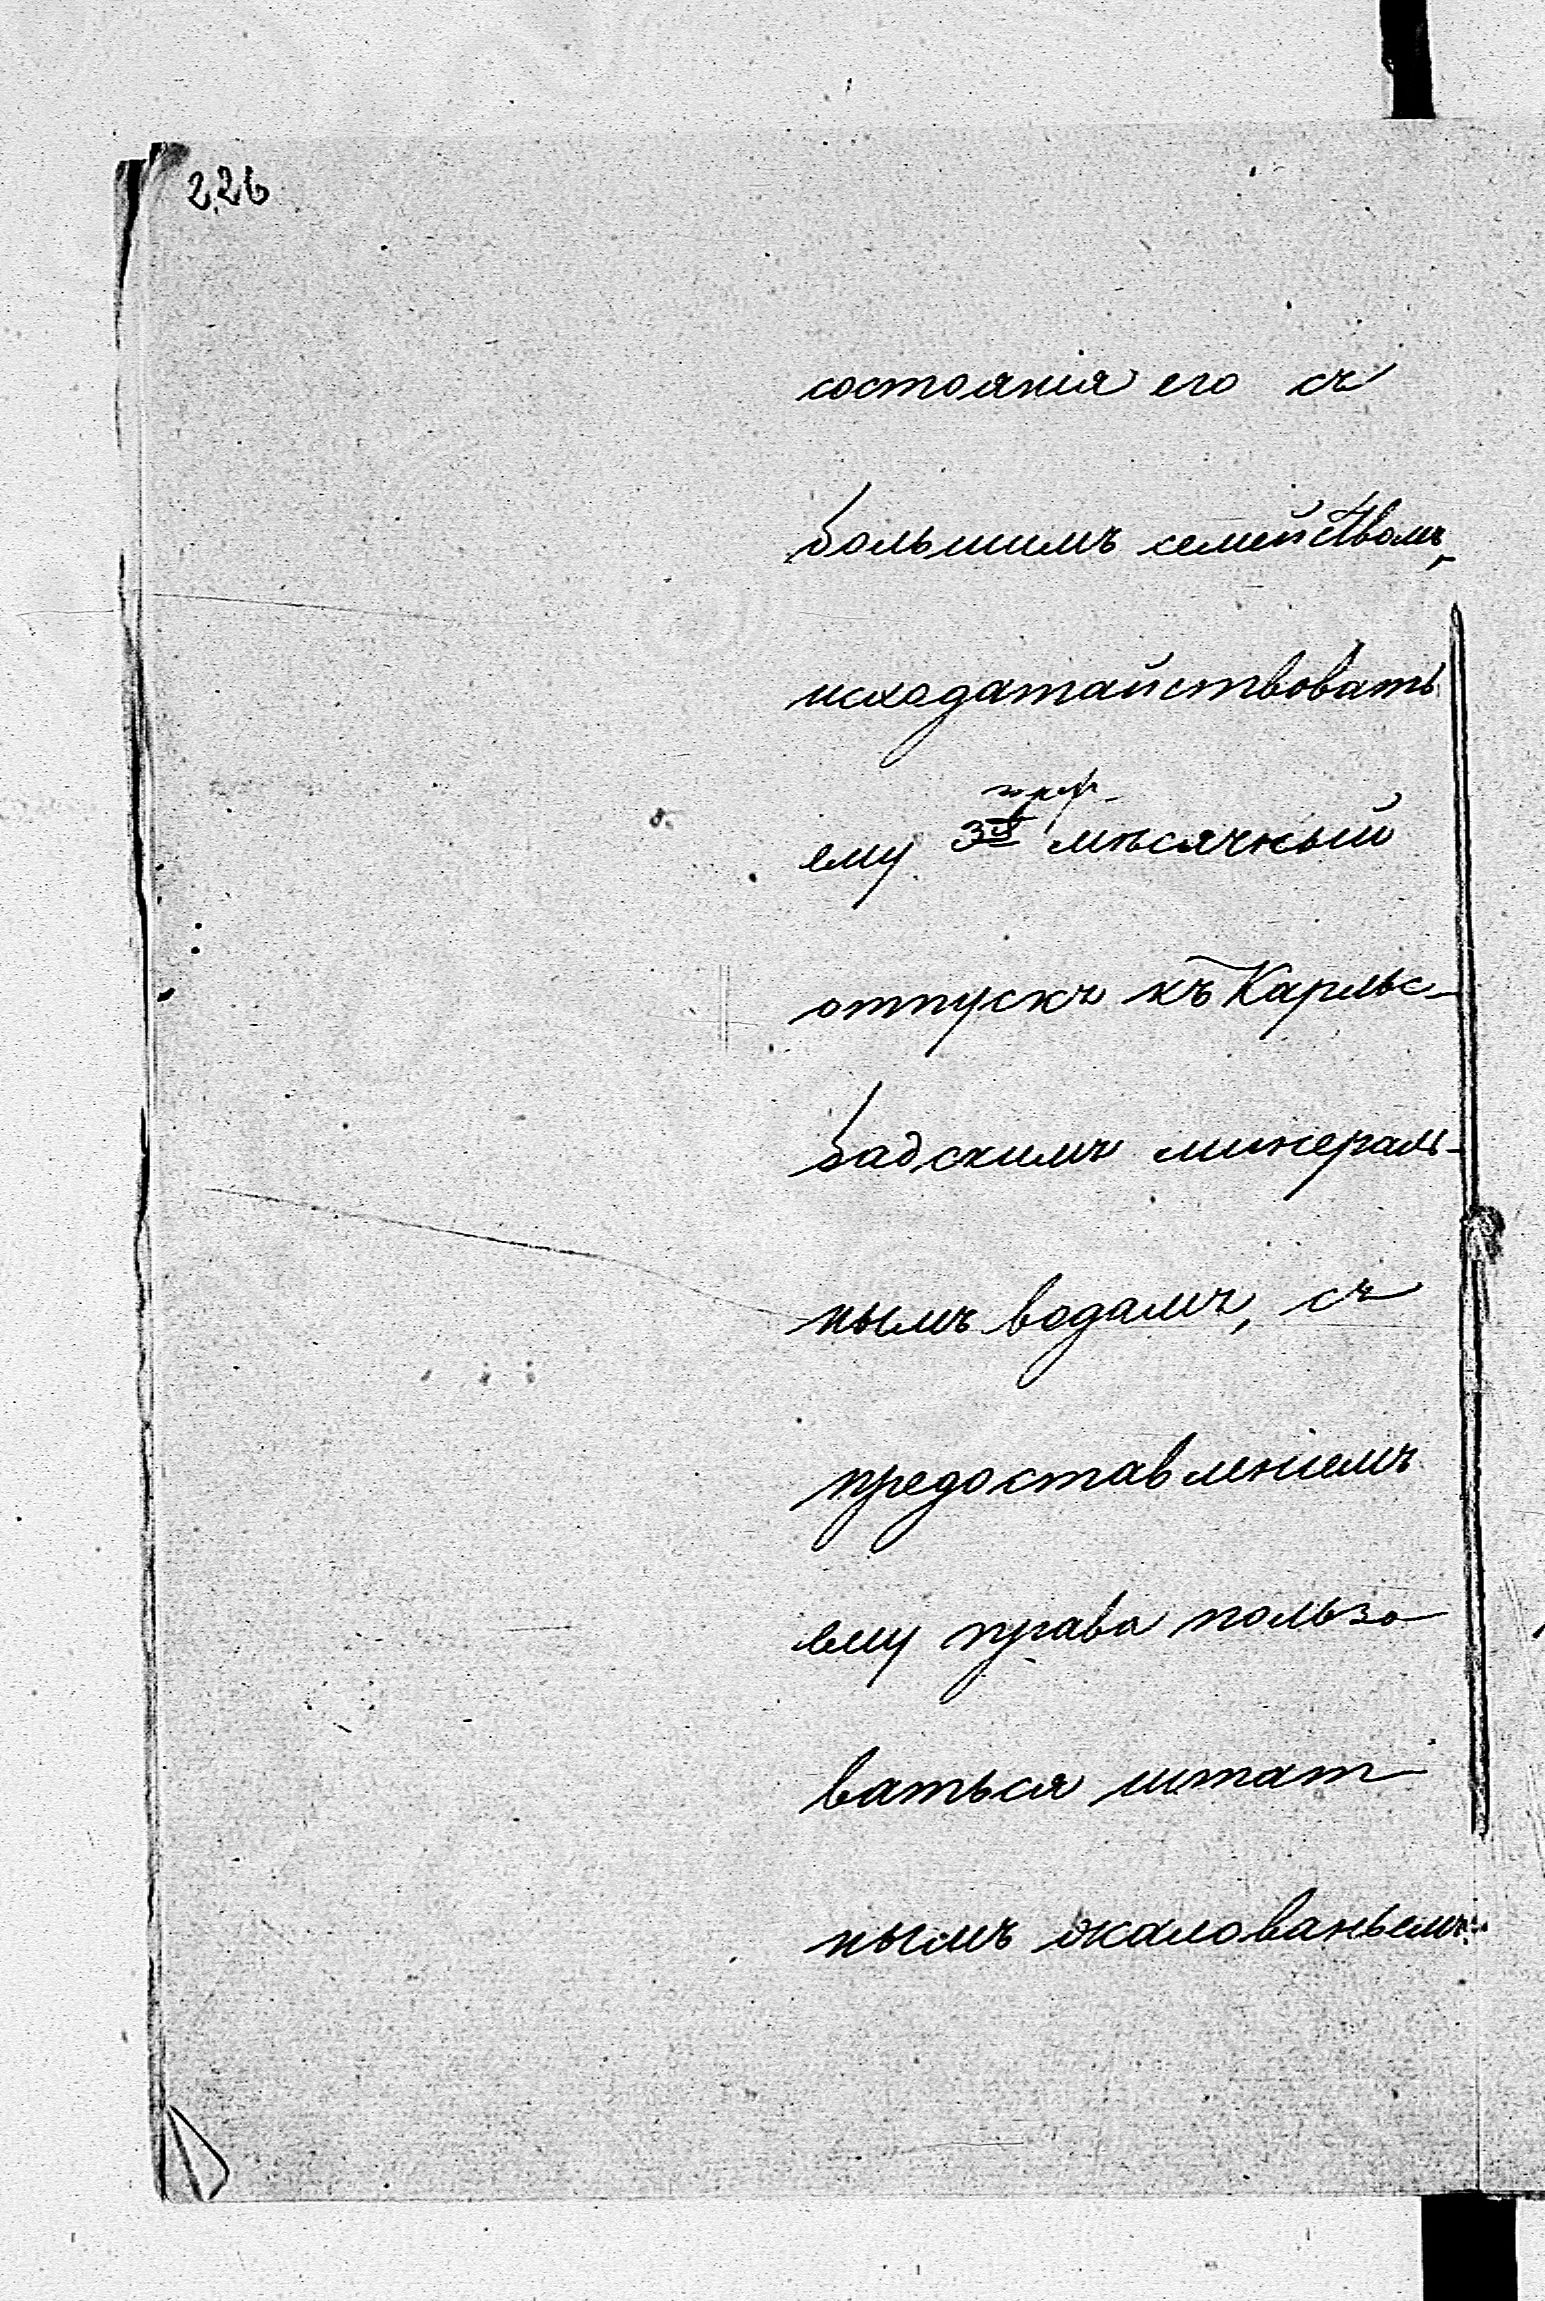 226
состоянія его съ
большимъ семействомъ,
исходатайствовать
ему 3х мѣсячный
отпускъ къ Карльс-
бадскимъ минераль-
нымъ водамъ, съ
предоставленіемъ
ему права пользо
ваться штат
нымъ жалованьемъ